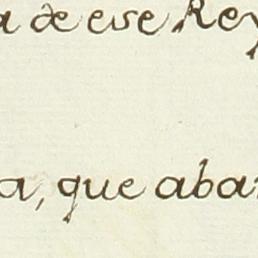 a de ese Rey
a, que aba